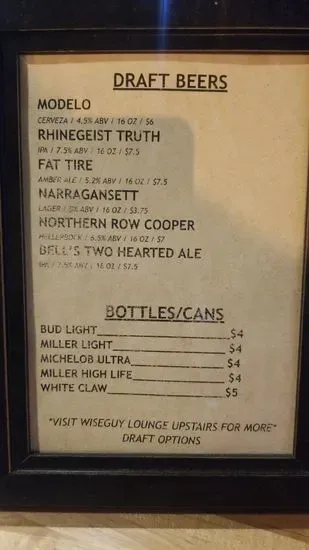 DRAFT BEERS
MODELO
CERVEZA / 4.5% ABV / 16 OZ / $6
RHINEGEIST TRUTH
IPA / 7.5% ABV / 16 OZ / $7.5
FAT TIRE
AMBER ALE / 5.2% ABV / 16 OZ / $7.5
NARRAGANSETT
LAGER / 5% ABV / 16 OZ / $3.75
NORTHERN ROW COOPER
HELLERBOCK / 6.5% ABV / 16 OZ / $7
BELL'S TWO HEARTED ALE
IPA / 7.5% ABV / 16 OZ / $7.5
BOTTLES/CANS
BUD LIGHT $4
MILLER LIGHT $4
MICHELOB ULTRA $4
MILLER HIGH LIFE $4
WHITE CLAW $5
*VISIT WISEGUY LOUNGE UPSTAIRS FOR MORE*
DRAFT OPTIONS